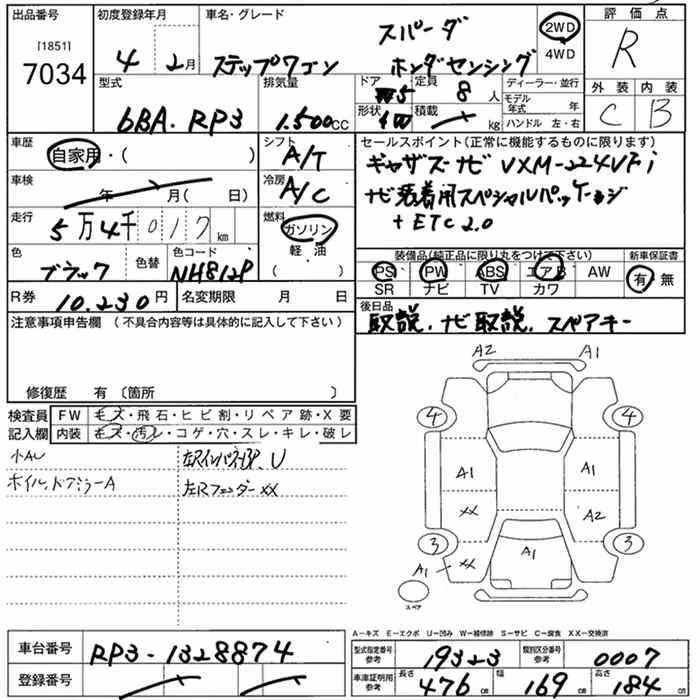 出品番号 初度登録年月 車名・グレード スパーダ 2WD 評価点
[1851] 4WD
7034 4 2月 ステップワゴン ホンダセンシング R
型式 排気量 ドア 5 定員 8人 ディーラー・並行 外装 内装
6BA・RP3 1.500CC 形状 積載 kg モデル年式 年 C B
ハンドル 左・右
車歴 シフト セールスポイント(正常に機能するものに限ります)
自家用・( ) A/T ギャザズナビ VXM-224VFi
車検 年 月( 日) 冷房 A/C ナビ装着用スペシャルパッケージ
走行 5万4千017km 燃料 ガソリン +ETC2.0
軽・油
( )
色 ブラック 色替 色コード NH812P 装備品(純正品に限り丸をつけて下さい) 新車保証書
PS PW ABS エアB AW 有・無
SR ナビ TV カワ
R券 10.230円 名変期限 月 日 後日品
取説.ナビ取説.スペアキー
注意事項申告欄 (不具合内容等は具体的に記入して下さい)
修復歴 有 〔箇所 〕
A2 A1
検査員 FW キズ・飛石・ヒビ割・リペア跡・X要
記入欄 内装 キズ・汚レ・コゲ・穴・スレ・キレ・破レ
4 4
小AU 左Rインパネ U
ホイル,ドアミラーA 左Rフェンダー XX
A1 A1
XX A2
3 3
A1 XX A1
スペア
A-キズ E-エクボ U-凹み W-補修跡 S-サビ C-腐食 XX-交換済
車台番号 RP3-1328874 型式指定番号 参考 19323 類別区分番号 参考 0007
登録番号 車庫証明用 参考 長さ 476cm 幅 169cm 高さ 184cm